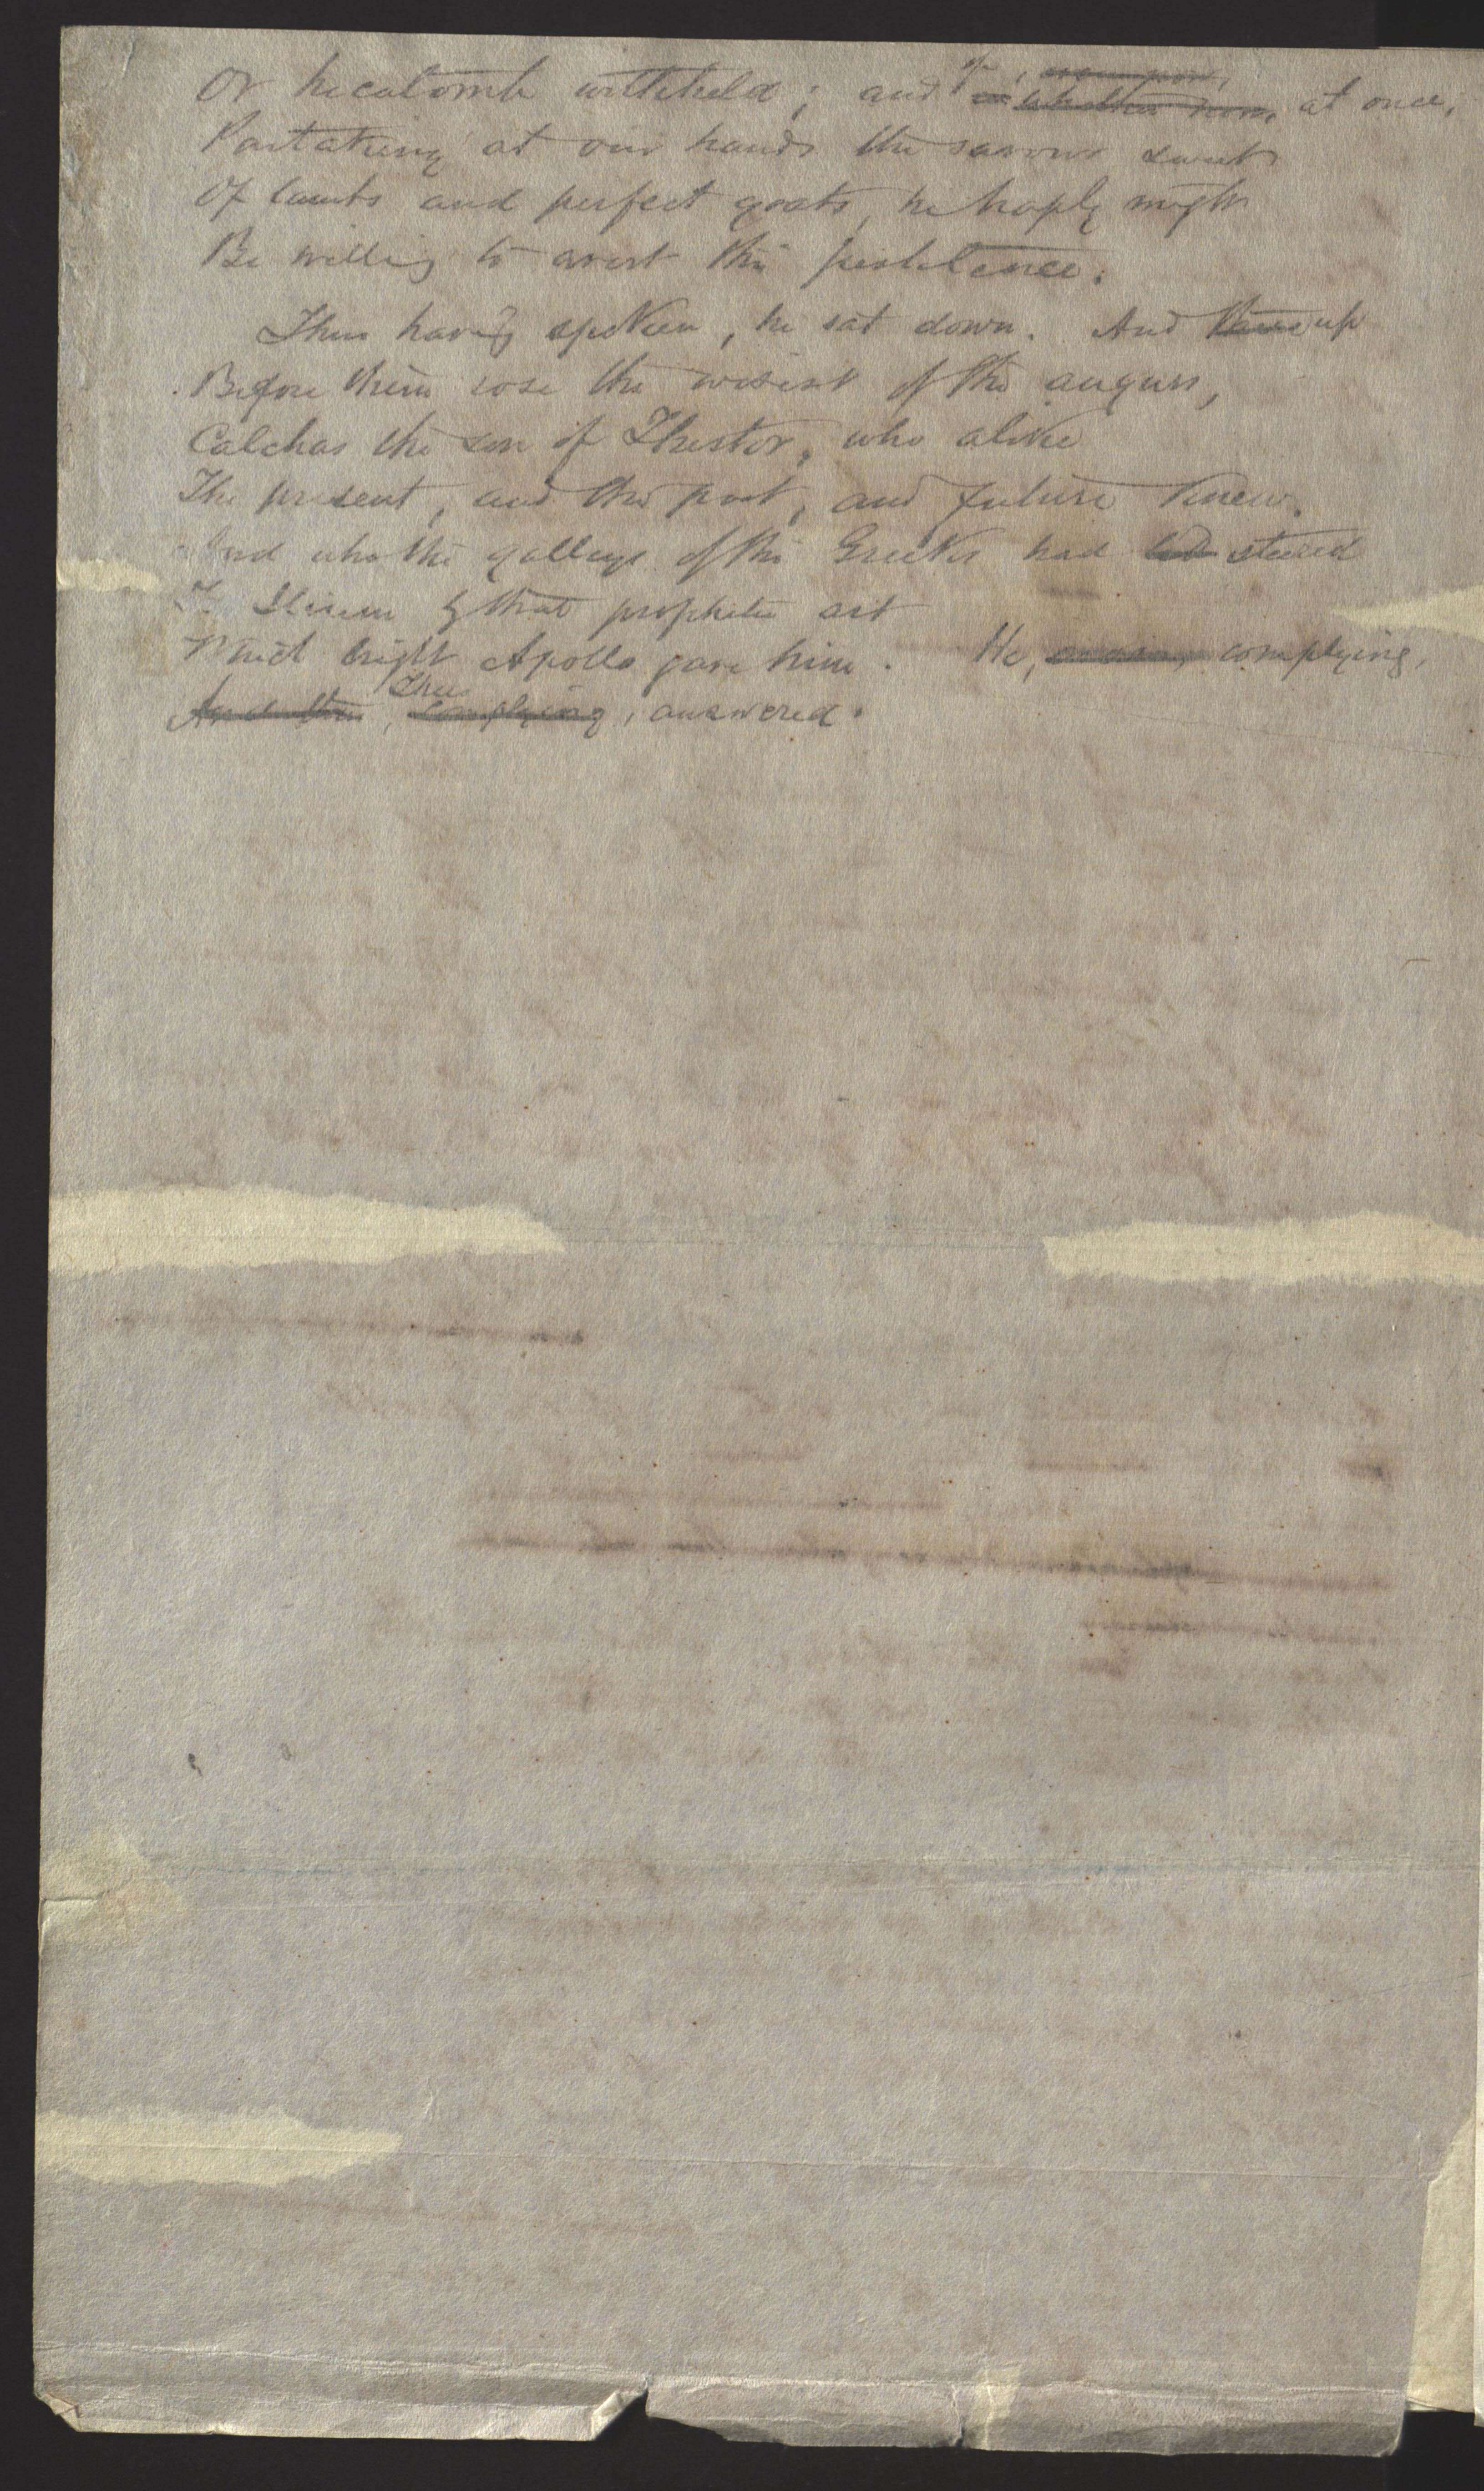 Or hecatomb withheld; and if at once,
Partaking at our hands the savour sweet
Of lambs and perfect goats, he haply might
Be willing to avert this pestilence.
Thus having spoken, he sat down. And up
Before them rose the wisest of the augurs,
Calchas the son of Thestor, who alike
The present, and the past, and future knew.
And who the galleys of the Greeks had led steered
To Ilium by that prophetic art
Which bright Apollo gave him. He, complying,
Thus
And then, complying, answered.